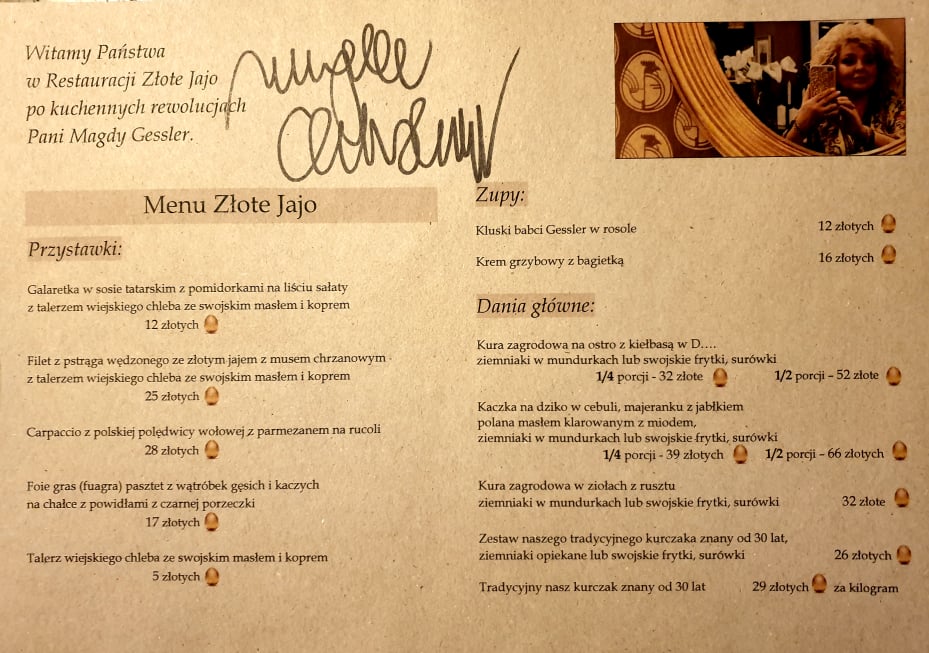 Witamy Państwa
w Restauracji Złote Jajo
po kuchennych rewolucjach
Pani Magdy Gessler.
Menu Złote Jajo
Przystawki:
Galaretka w sosie tatarskim z pomidorkami na liściu sałaty
z talerzem wiejskiego chleba ze swojskim masłem i koprem
12 złotych
Filet z pstrąga wędzonego ze złotym jajem z musem chrzanowym
z talerzem wiejskiego chleba ze swojskim masłem i koprem
25 złotych
Carpaccio z polskiej polędwicy wołowej z parmezanem na rucoli
28 złotych
Foie gras (fuagra) pasztet z wątróbek gęsich i kaczych
na chałce z powidłami z czarnej porzeczki
17 złotych
Talerz wiejskiego chleba ze swojskim masłem i koprem
5 złotych
Zupy:
Kluski babci Gessler w rosole 12 złotych
Krem grzybowy z bagietką 16 złotych
Dania główne:
Kura zagrodowa na ostro z kiełbasą w D….
ziemniaki w mundurkach lub swojskie frytki, surówki
1/4 porcji - 32 złote 1/2 porcji – 52 złote
Kaczka na dziko w cebuli, majeranku z jabłkiem
polana masłem klarowanym z miodem,
ziemniaki w mundurkach lub swojskie frytki, surówki
1/4 porcji - 39 złotych 1/2 porcji – 66 złotych
Kura zagrodowa w ziołach z rusztu
ziemniaki w mundurkach lub swojskie frytki, surówki 32 złote
Zestaw naszego tradycyjnego kurczaka znany od 30 lat,
ziemniaki opiekane lub swojskie frytki, surówki 26 złotych
Tradycyjny nasz kurczak znany od 30 lat 29 złotych za kilogram